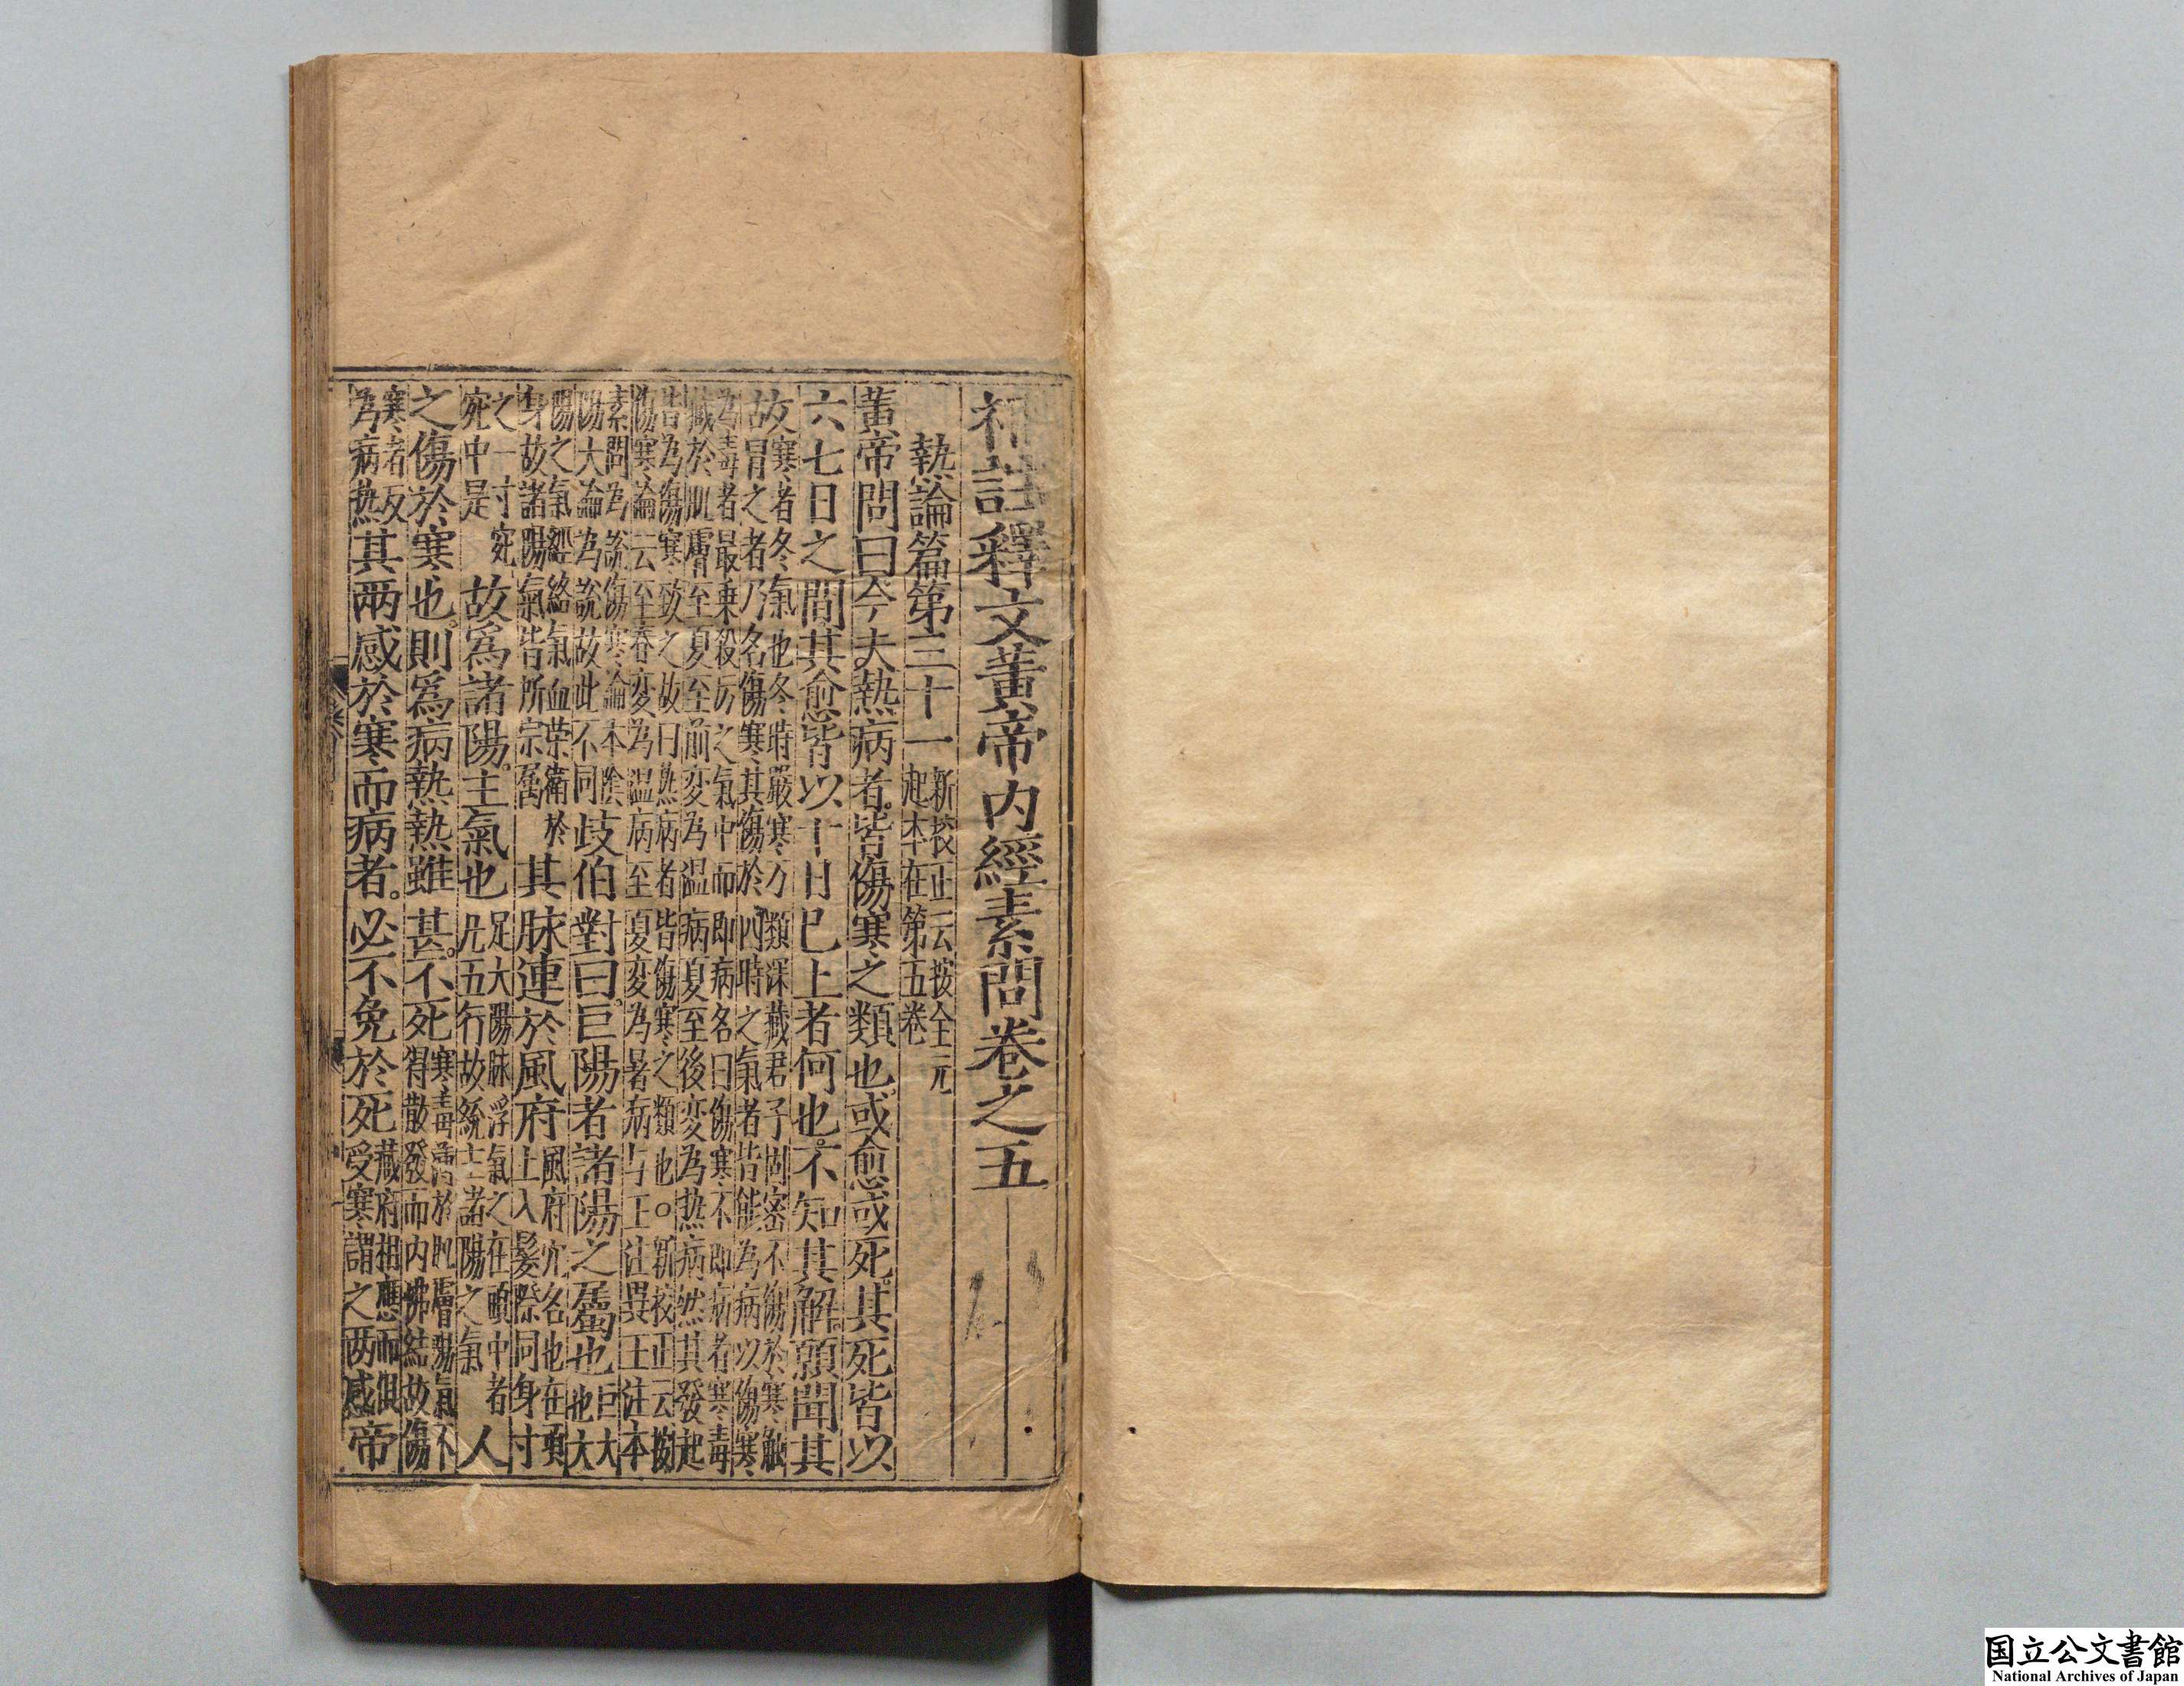 補註釋文黃帝内經素問卷之五
熱論篇第三十一新校正云按全元起本在第五卷
黃帝問曰今夫熱病者。皆傷寒之類也。或愈或死。其死皆以
六七日之間其愈皆以十日已上者何也。不知其解。願聞其
故寒者冬氣也冬時嚴寒万類深藏君子固密不傷於寒觸冒之者乃名傷寒其傷於四時之氣者皆能為病以傷寒
為毒者最乗殺厉之氣中而即病名曰傷寒不即病者寒毒藏於肌膚至夏至前変為温病夏至後変為热病然其發起
皆為傷寒致之故曰热病者皆傷寒之類也○新校正云按傷寒論云至春変為温病至夏変為暑病与王注異王注本
素問為說傷寒論本陰陽大論為說故此不同歧伯對曰。巨陽者諸陽之屬也巨大也大
陽之氣經絡氣血荣衛於身故諸陽氣皆所宗属其脉連於風府風府穴名也在項上入髮際同身寸
之一寸宛宛中是故爲諸陽。主氣也足大陽脉浮氣之在頭中者凡五行故統主諸陽之氣人
之傷於寒也。則爲病熱熱雖甚。不死寒毒薄於肌膚陽氣不得散發而内怫結故傷
寒者反為病热其兩感於寒而病者。必不免於死藏府相應而俱受寒謂之两感帝
国立公文書館
National Archives of Japan